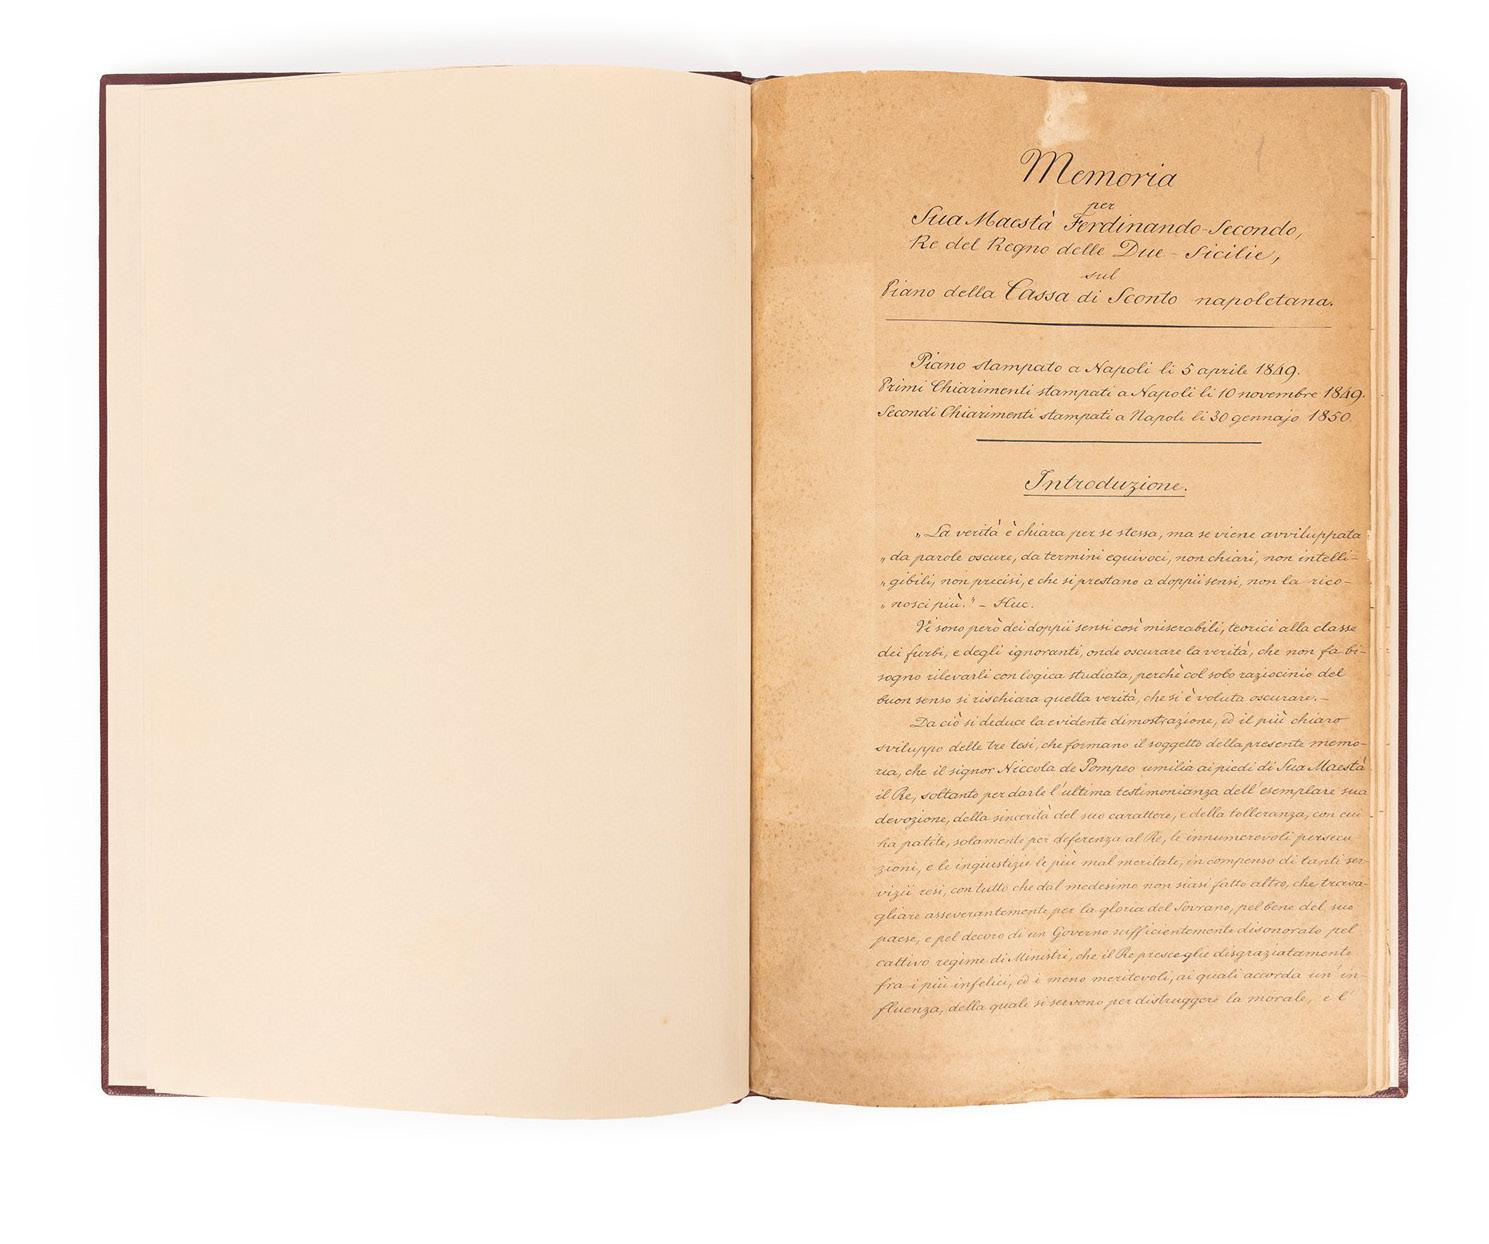 Memoria
per
Sua Maestà Ferdinando Secondo,
Re del Regno delle Due-Sicilie,
sul
Piano della Cassa di Sconto napoletana.
Piano stampato a Napoli li 5 aprile 1849.
Primi Chiarimenti stampati a Napoli li 10 novembre 1849.
Secondi Chiarimenti stampati a Napoli li 30 gennajo 1850.
Introduzione.
„La verità è chiara per se stessa, ma se viene avviluppata
„da parole oscure, da termini equivoci, non chiari, non intelli-
„gibili, non precisi, e che si prestano a doppii sensi, non la rico-
„nosci più." – Huc.
Vi sono però dei doppii sensi così miserabili, teorici alla classe
dei furbi, e degli ignoranti, onde oscurare la verità, che non fa bi-
sogno rilevarli con logica studiata, perchè col solo raziocinio del
buon senso si rischiara quella verità, che si è voluta oscurare. –
Da ciò si deduce la evidente dimostrazione, ed il più chiaro
sviluppo delle tre tesi, che formano il soggetto della presente memo-
ria, che il signor Niccola de Pompeo umilia ai piedi di Sua Maestà
il Re, soltanto per darle l'ultima testimonianza dell'esemplare sua
devozione, della sincerità del suo carattere, e della tolleranza, con cui
ha patite, solamente per deferenza al Re, le innumerevoli persecu-
zioni, e le ingiustizie le più mal meritate, in compenso di tanti ser-
vizii resi, con tutto che dal medesimo non siasi fatto altro, che trava-
gliare asseverantemente per la gloria del Sovrano, pel bene del suo
paese, e pel decoro di un Governo sufficientemente disonorato pel
cattivo regime di Ministri, che il Re presceglie disgraziatamente
fra i più infelici, ed i meno meritevoli, ai quali accorda un'in-
fluenza, della quale si servono per distruggere la morale, e l'